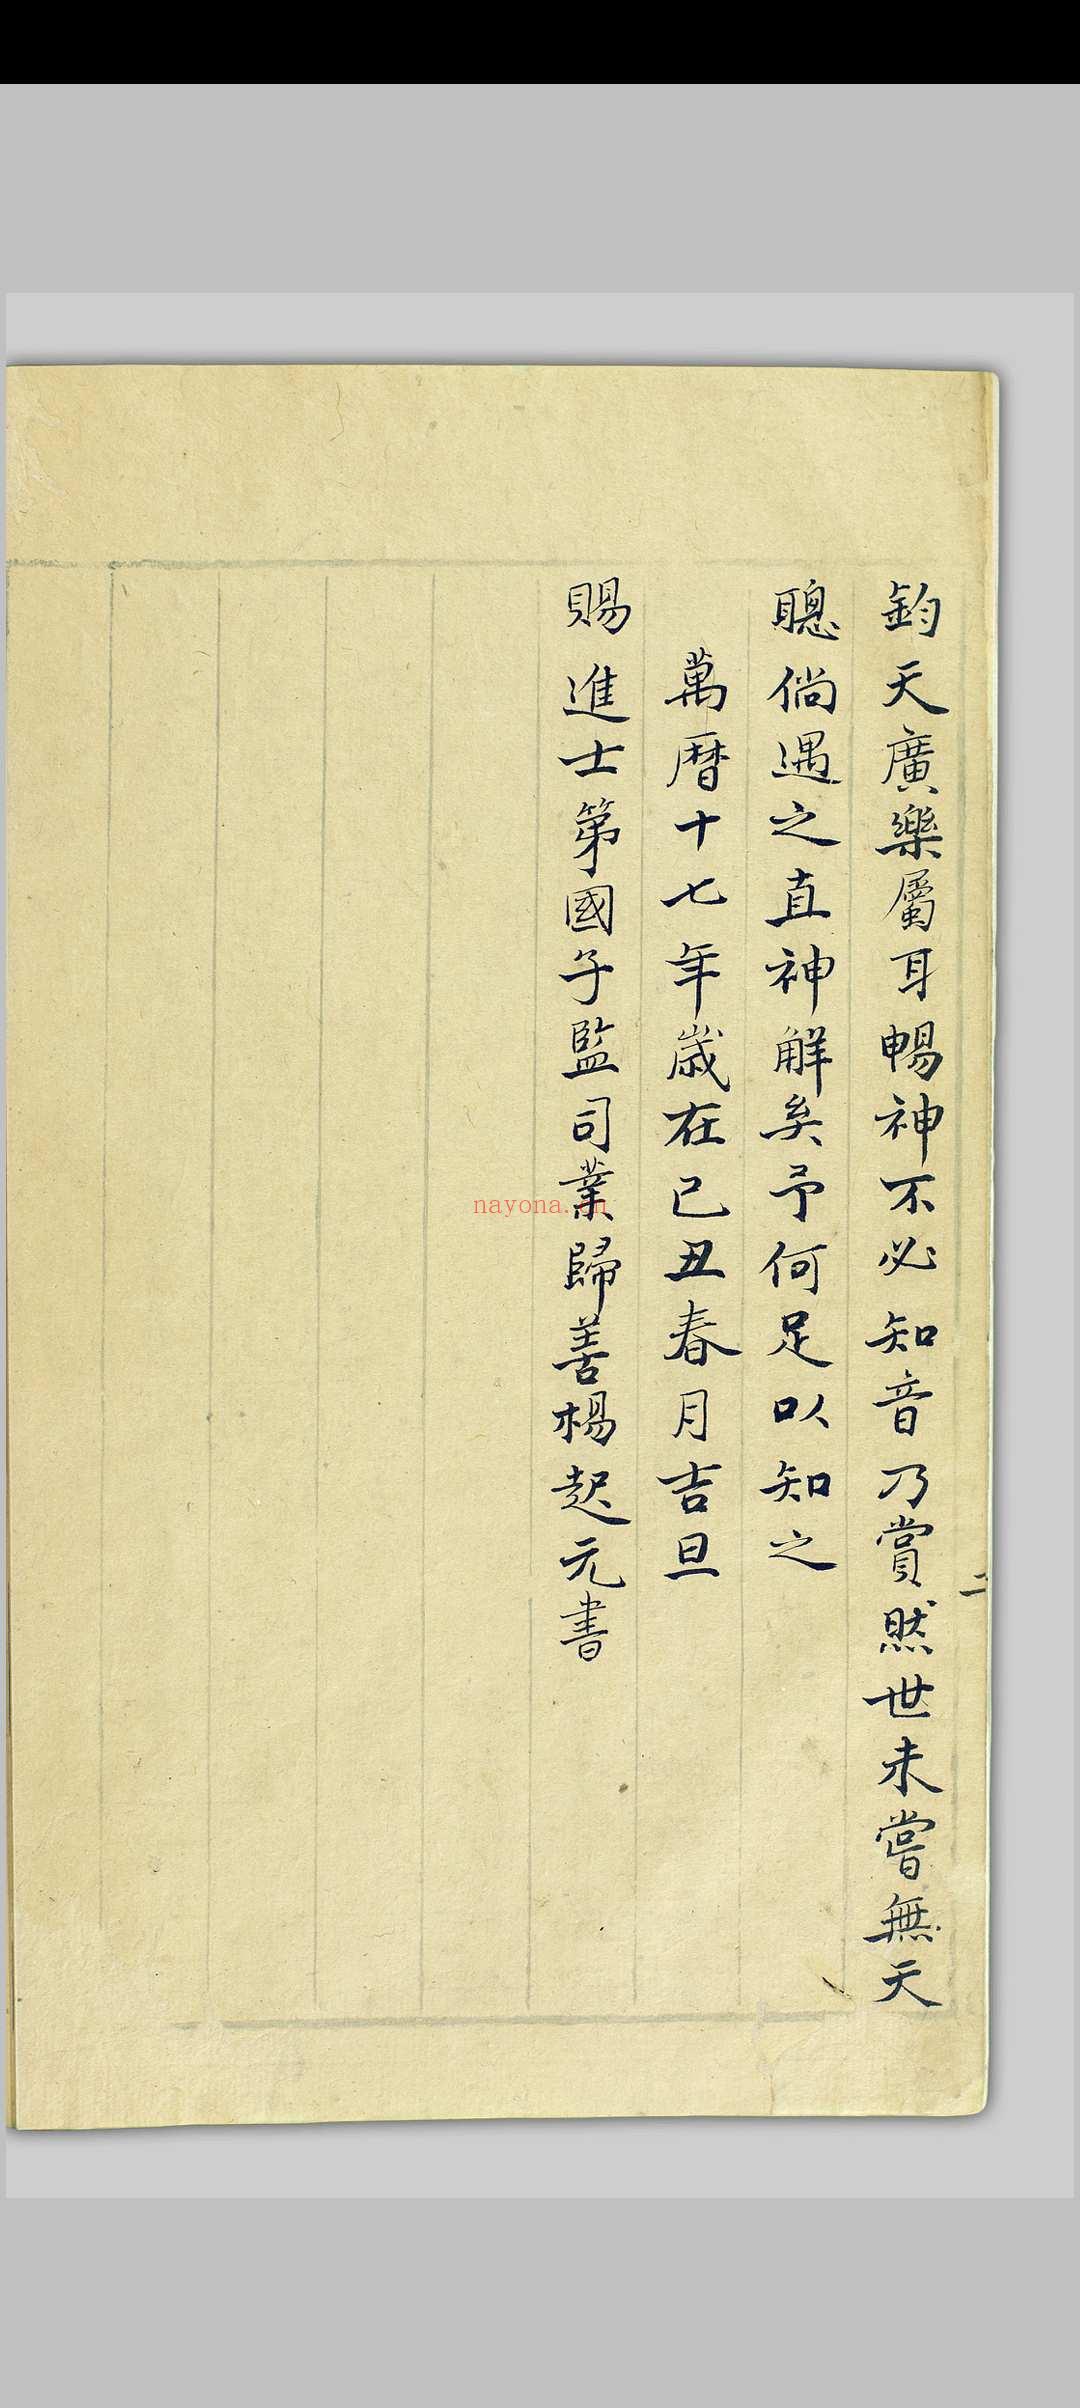 鈞天廣樂屬耳暢神不必知音乃賞然世未嘗無天
聰倘遇之直神解矣予何足以知之
萬曆十七年歲在己丑春月吉旦
賜進士第國子監司業歸善楊起元書
二